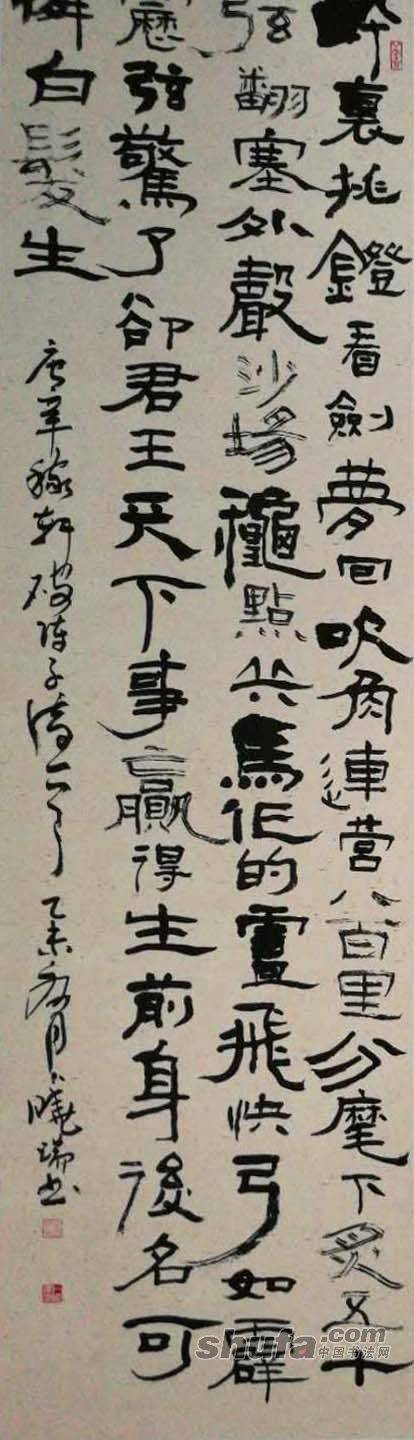 醉裏挑鐙看劍夢回吹角連營八百里分麾下炙五十
弦翻塞外聲沙場龝點兵馬作的盧飛快弓如霹
靂弦驚了卻君王天下事贏得生前身後名可
憐白髮生
唐辛稼軒破陣子詩一首 乙未秋月曉瑞書
shufa.com
中国书法网